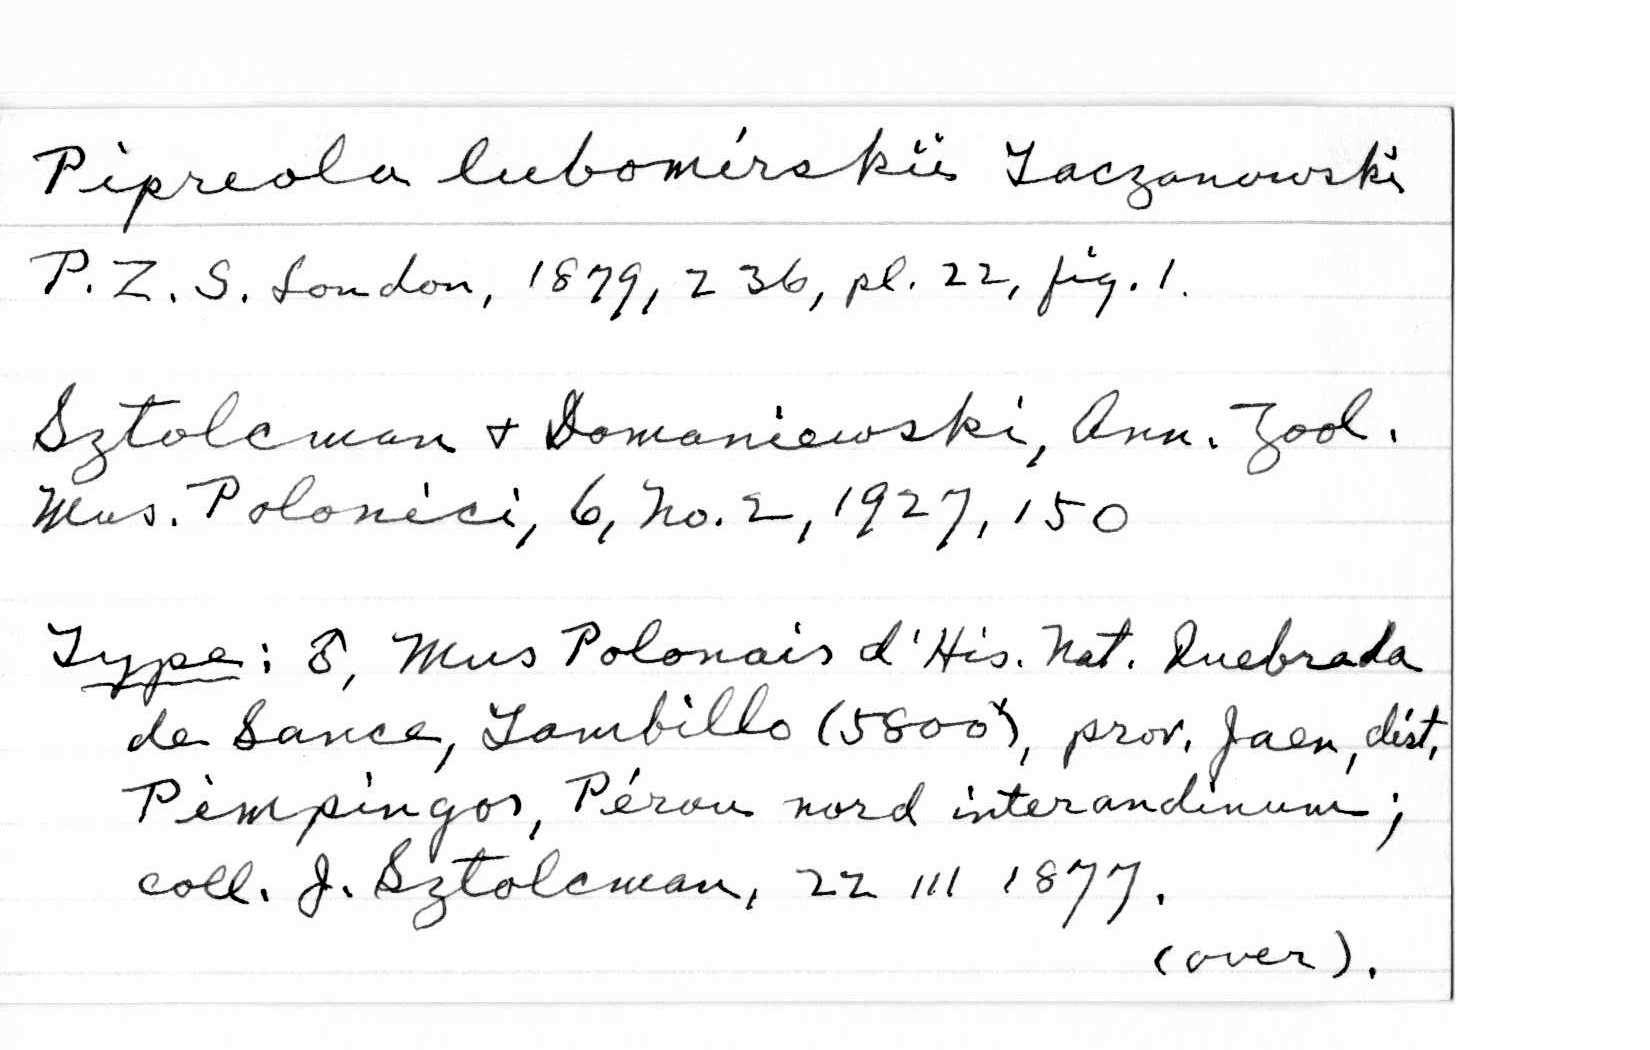 Pipreola lubomirskii Taczanowski
P. Z. S. London, 1879, 236, pl. 22, fig. 1.
Sztolcman + Domaniewski, Ann. Zool.
Mus. Polonici, 6, No. 2, 1927, 150
Type: ♂, Mus Polonais d'His. Nat. Quebrada
de Sance, Tambillo (5800'), prov. Jaen, dist.
Pimpingos, Pérou nord interandinum;
coll. J. Sztolcman, 22 III 1877.
(over).